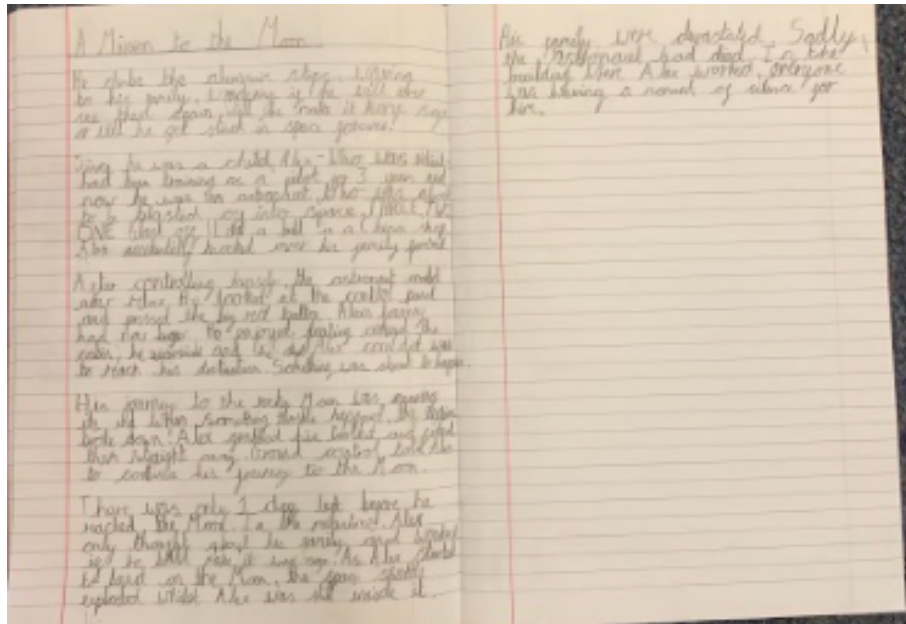 A Mission to the Moon
He climbs the aluminium steps, waving
to his family. Wondering if he will ever
see them again, will he make it home safe
or will he get stuck in space forever!
he was a child, Alex - who was
had been training as a pilot for 3 years and
now he was an astronaut who was about
to be blasted off into space.
ONE blast off! Like a bull in a China shop
Alex accidentally knocked over his family
After controlling himself, the astronaut
He looked at the control panel
and pressed the big red button. Alex's
had now begun. He enjoyed floating around the
cabin, he and Alex couldn't wait
to reach his destination. Something was about to happen.
His journey to the rocky Moon was
when something terrible happened, the
broke down! Alex grabbed and
them straight away. Ground control told
to continue his journey to the Moon.
There was only 1 day left before he
reached the Moon. In the Alex
only thought about his family and
if he will make it As Alex started
to land on the Moon, the space shuttle
exploded whilst Alex was still inside it.
His family were devastated. Sadly,
the astronaut had died. In the
building where Alex worked, everyone
was having a moment of silence for
him.